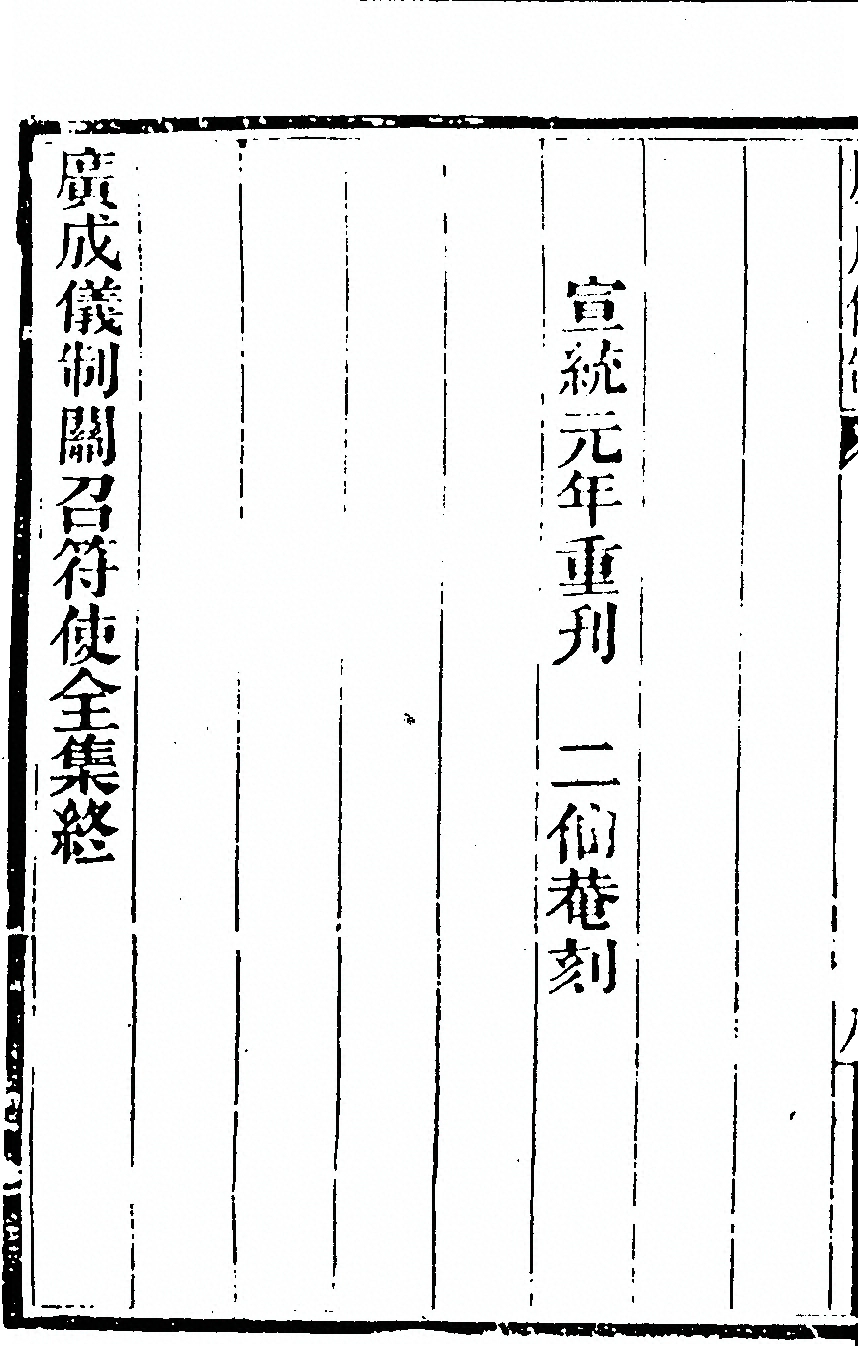 宣統元年重刊　二仙菴刻
廣成儀制關召符使全集終